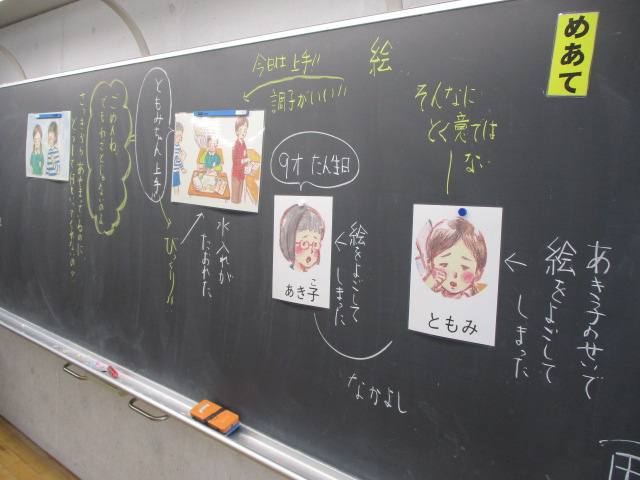 めあて
絵
そんなに
とく意では
ない
あき子のせいで
絵をよごして
しまった
ともみ
今日は上手!!
調子がいい!!
9才 たん生日
あき子
こ
絵をよごして
しまった
なかよし
水入れが
たおれた
びっくり!!
ともみちゃん 上手!
ごめんね。
でもわざとじゃないのよ
さっきから あやまってるのに